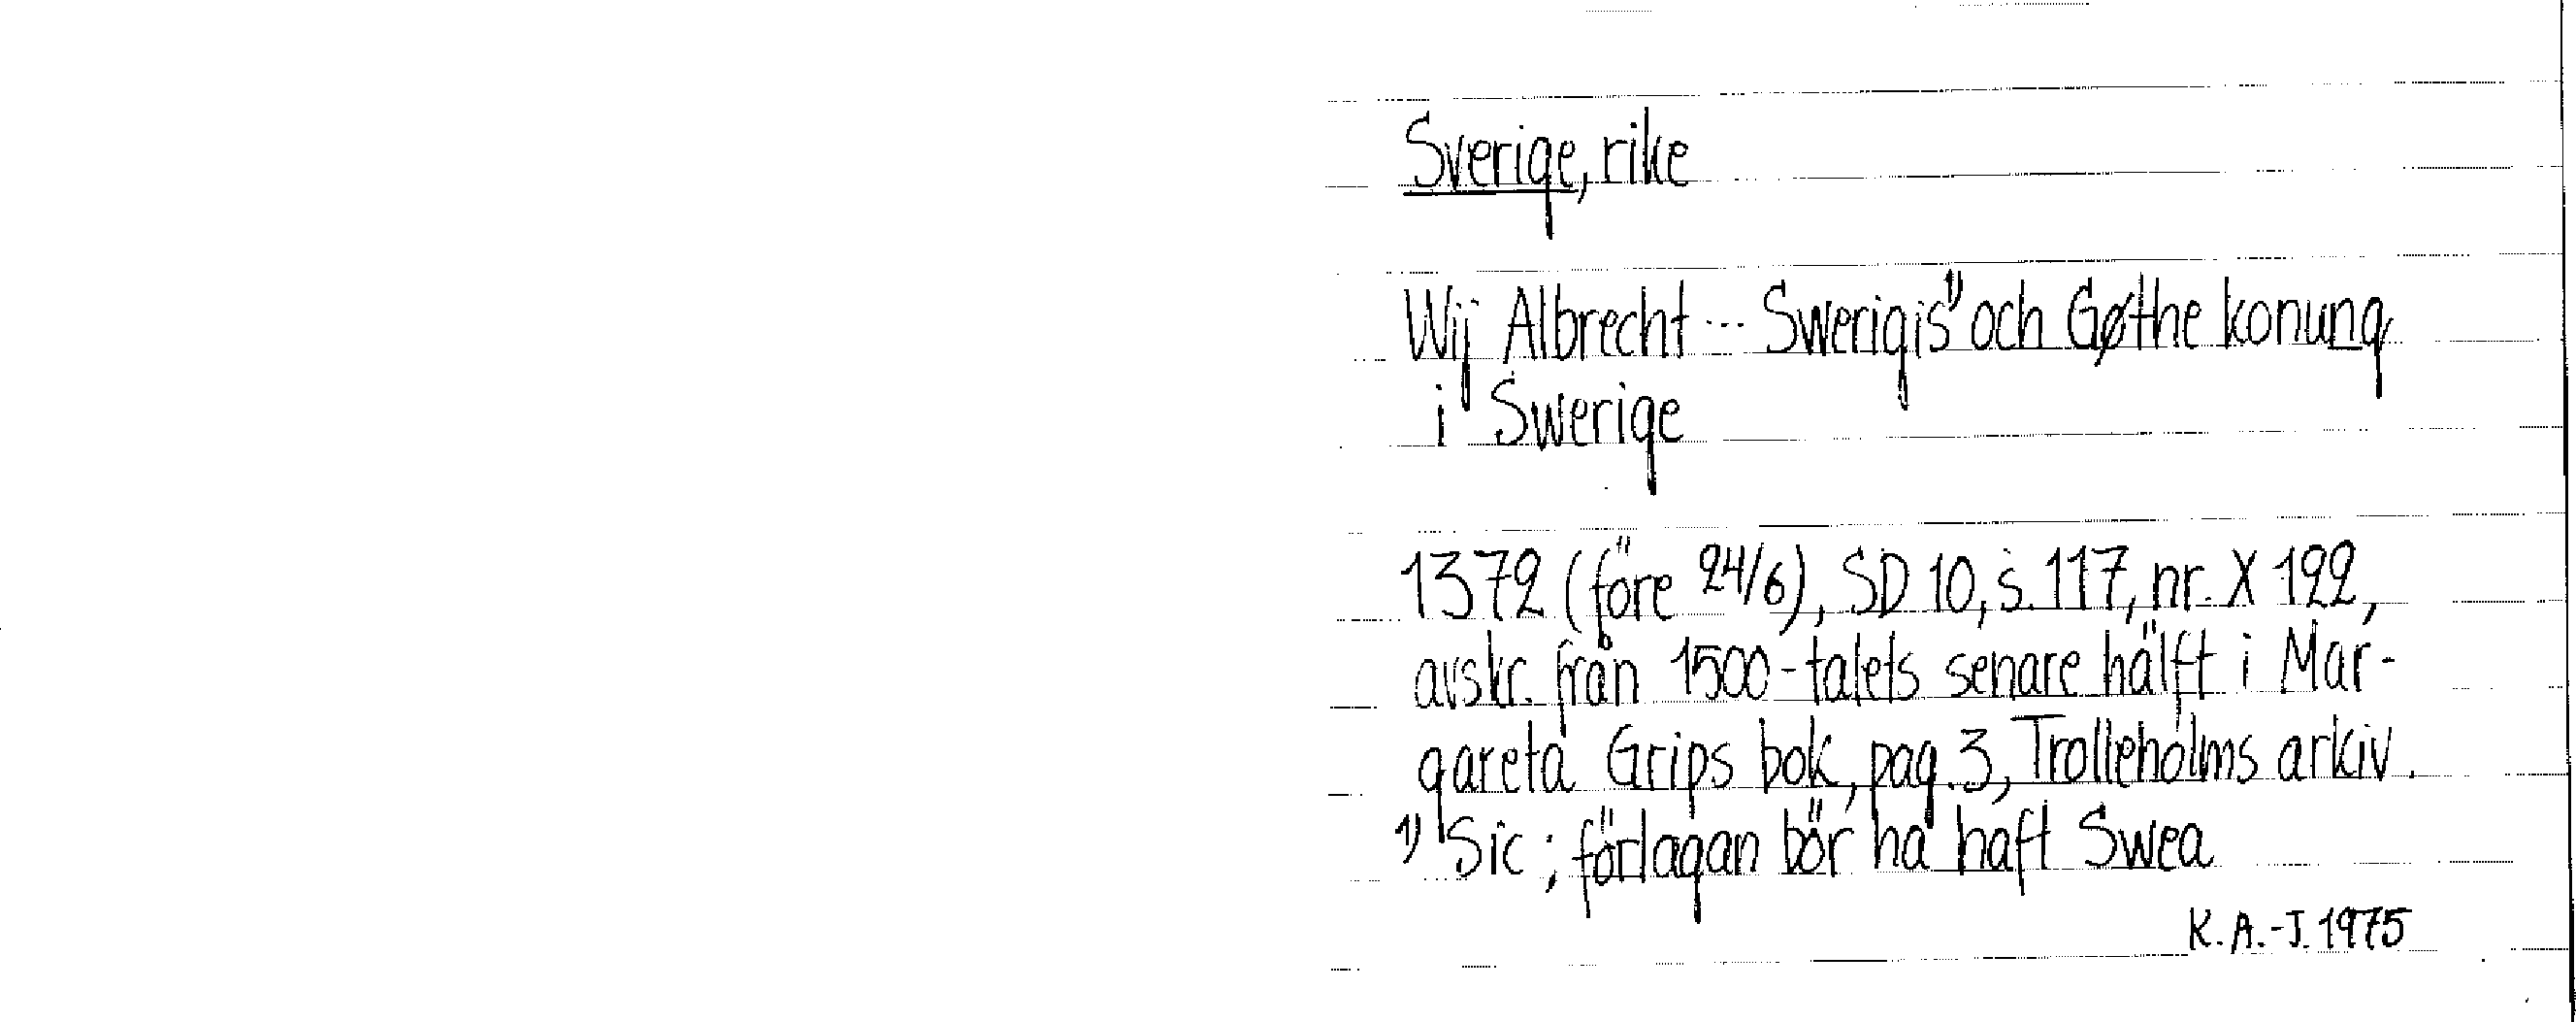 Sverige, rike
Wij Albrecht --- Swerigis 1) och Gøthe konung
i Swerige
1372 (före 24/6), SD 10, s. 117, nr. X 122,
avskr. från 1500-talets senare hälft i Mar-
gareta Grips bok, pag. 3, Trolleholms arkiv.
1) Sic; förlagan bör ha haft Swea
K.A.-J. 1975